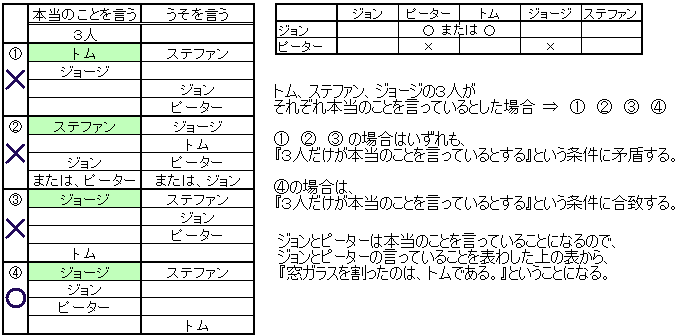 本当のことを言う うそを言う
3人
① トム ステファン
× ジョージ
ジョン
ピーター
② ステファン ジョージ
× トム
ジョン ピーター
または、ピーター または、ジョン
③ ジョージ ステファン
× ジョン
ピーター
トム
④ ジョージ ステファン
○ ジョン
ピーター
トム
ジョン ピーター トム ジョージ ステファン
ジョン ○ または ○
ピーター × ×
トム、ステファン、ジョージの3人が
それぞれ本当のことを言っているとした場合 ⇒ ① ② ③ ④
① ② ③ の場合はいずれも、
『3人だけが本当のことを言っているとする』という条件に矛盾する。
④の場合は、
『3人だけが本当のことを言っているとする』という条件に合致する。
ジョンとピーターは本当のことを言っていることになるので、
ジョンとピーターの言っていることを表わした上の表から、
『窓ガラスを割ったのは、トムである。』ということになる。